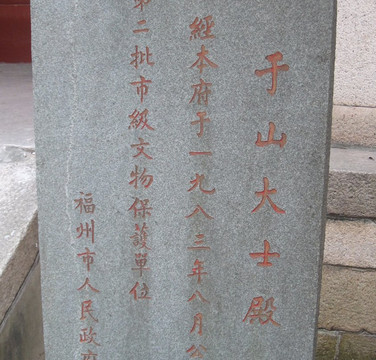 于山大士殿
經本府于一九八三年八月公
第二批市級文物保護單位
福州市人民政府